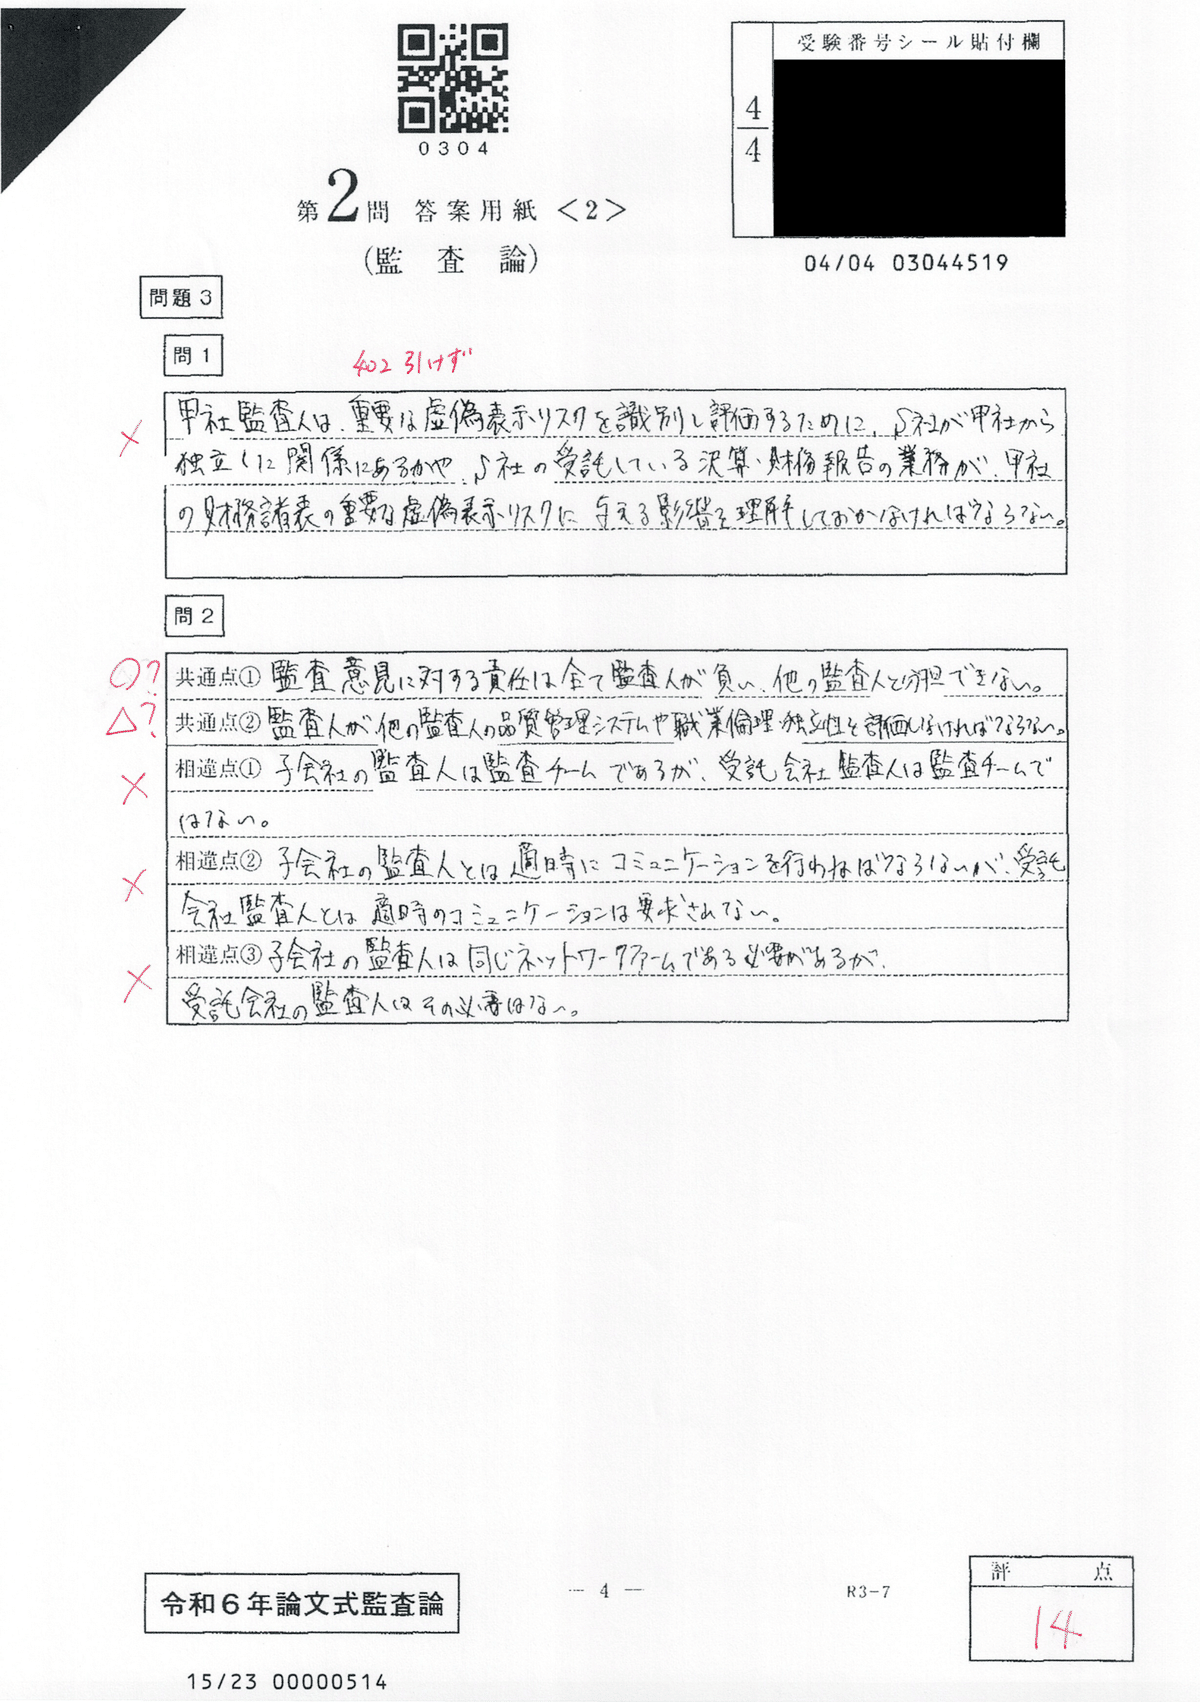 0304
受験番号シール貼付欄
4
4
第2問 答案用紙 <2>
(監 査 論)
04/04 03044519
問題3
問1
402引けず
甲社監査人は、重要な虚偽表示リスクを識別し評価するために、S社が甲社から
独立した関係にあるかや、S社の受託している決算・財務報告の業務が、甲社
の財務諸表の重要な虚偽表示リスクに与える影響を理解しておかなければならない。
×
問2
○? 共通点① 監査意見に対する責任は全て監査人が負い、他の監査人と分担できない。
△? 共通点② 監査人が、他の監査人の品質管理システムや職業倫理・独立性を評価しなければならない。
相違点① 子会社の監査人は監査チームであるが、受託会社監査人は監査チームで
× はない。
相違点② 子会社の監査人とは適時にコミュニケーションを行わねばならないが、受託
× 会社監査人とは適時のコミュニケーションは要求されてない。
相違点③ 子会社の監査人は同じネットワークファームである必要があるが、
× 受託会社の監査人はその必要はない。
令和6年論文式監査論
― 4 ―
R3-7
評 点
14
15/23 00000514